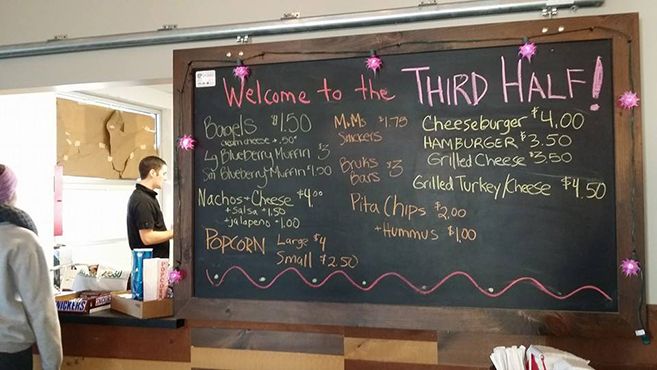 Welcome to the THIRD HALF!
Bagels $1.50
cream cheese + .50¢
Lg Blueberry Muffin $3
Sm Blueberry Muffin $1.50
Nachos + Cheese $4.00
+ Salsa $1.50
+ jalapeño $1.00
POPCORN Large $4
Small $2.50
M&Ms $1.75
Snickers
Bruhs $3
Bars
Pita Chips $2.00
+ Hummus $1.00
Cheeseburger $4.00
HAMBURGER $3.50
Grilled Cheese $3.50
Grilled Turkey/Cheese $4.50
SNICKERS